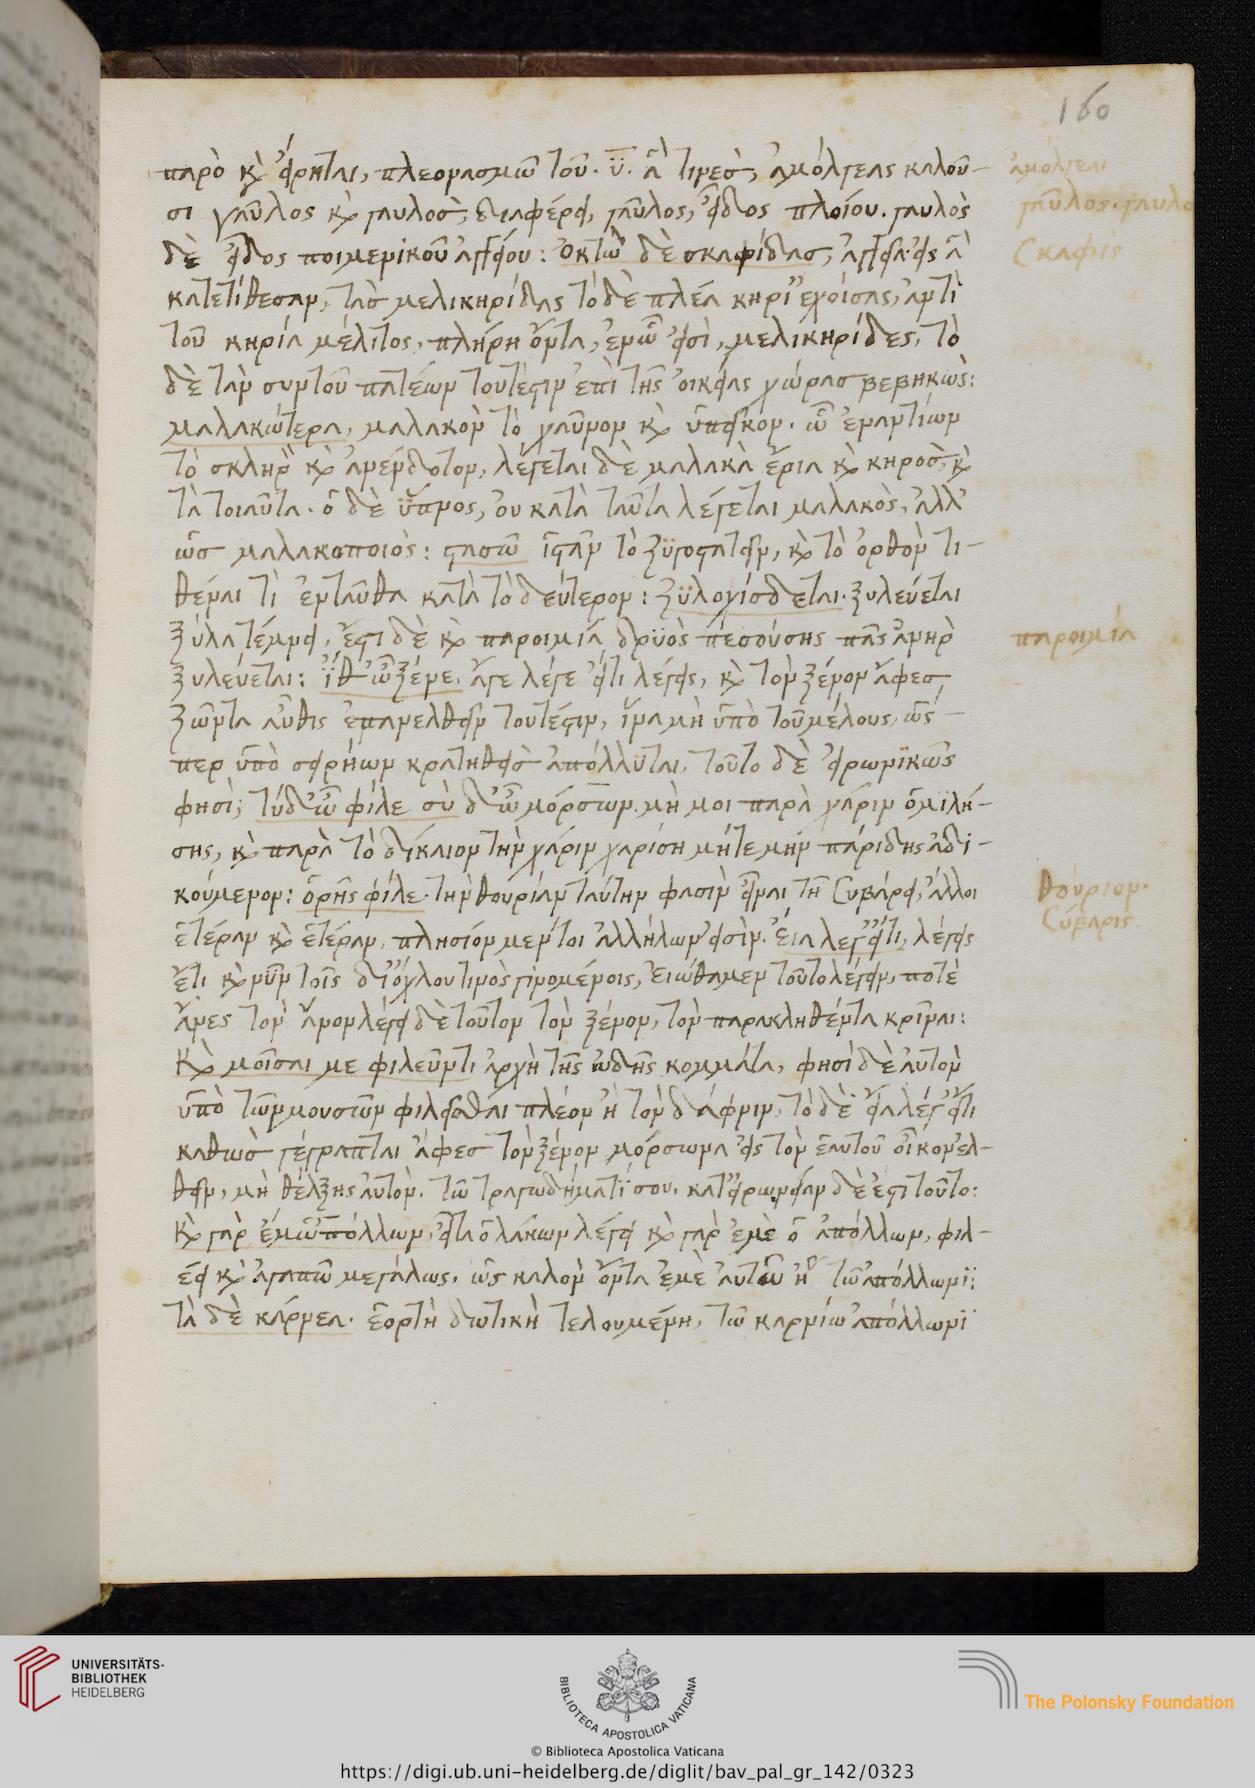 160
παρὸ κ̀ εἴρηται, πλεονασμῶ τοῦ ϋ. ἃ τινὲσ, ἀμόλγεας καλοῦ-
σι γαῦλος κ̀ γαυλοσ, διαφέρει, γαῦλος, εἶδος πλοίου. γαυλὸς
δὲ εἶδος ποιμενικοῦ ἀγγείου: ὀκτὼ δὲ σκαφίδασ, ἀγγεῖα εἰς ἃ
κατετίθεσαν, τὰσ μελικηρίδας τὸ δὲ πλέα κηρί' ἐχοίσας, ἀντὶ
τοῦ κηρία μέλιτος, πλήρη ὄντα, ἐν ὧ εἰσὶ, μελικηρίδες, τὸ
δὲ τὰν συντοῦ πατέων τουτέστιν ἐπὶ τῆς οἰκείας χώρασ βεβηκὼς:
μαλακώτερα, μαλακὸν τὸ χαῦνον κ̀ ὑπεῖκον. ὧ ἐναντίων
τὸ σκληρὸν κ̀ ἀνένδοτον, λέγεται δὲ μαλακὰ ἔρια κ̀ κηροσ, κ̀
τὰ τοιαῦτα. ὁ δὲ ὕπνος, ου κατὰ ταῦτα λέγεται μαλακὸς, ἀλλ'
ὡσ μαλακοποιὸς: στασῶ ἱστᾶν τὸ ζυγοστατεῖν, κ̀ τὸ ὀρθὸν τι-
θέναι τὶ ἐνταῦθα κατὰ τὸ δεύτερον: ξυλοχίσδεται. ξυλεύεται
ξύλα τέμνει, ἔστι δὲ κ̀ παροιμία δρυὸς πεσούσης πᾶς ἀνὴρ
ξυλεύεται: ἴθ' ὦ ξένε. ἄγε λέγε ὅτι λέγεις, κ̀ τὸν ξένον ἄφεσ
ζῶντα αὖθις ἐπανελθεῖν τουτέστιν, ἵνα μὴ ὑπὸ τοῦ μέλους, ὥσ-
περ ὑπὸ σειρήνων κρατηθεὶσ ἀπόλλυται. τοῦτο δὲ εἰρωνικῶς
φησὶ; τύδ' ὦ φίλε σὺ δ' ὦ μόρσων. μὴ μοι παρὰ χάριν ὁμιλή-
σης, κ̀ παρὰ τὸ δίκαιον τὴν χάριν χαρίση μήτε μὴν παρίδης ἀδι-
κούμενον: ὁρῆς φίλε. τὴν θουρίαν ταύτην φασὶν εἶναι τῆ Συβάρει, ἄλλοι
ἑτέραν κ̀ ἑτέραν, πλησίον μέντοι ἀλλήλων εἰσὶν. εἶα λέγ' εἴτι, λέγεις
ἔτι κ̀ νῦν τοῖς δι' ὄχλου τινὸς γινομένοις, εἰώθαμεν τοῦτο λέγειν, ποτὲ
ἄνες τὸν ἄνον λέγει δὲ τοῦτον τὸν ξένον, τὸν παρακληθέντα κρῖναι:
Κ̀ μοῖσαι με φιλεῦντι ἀρχὴ τῆς ὠδῆς κομμάτα, φησὶ δὲ αὐτὸν
ὑπὸ τῶν μουσῶν φιλεῖσθαι πλέον ἢ τὸν δάφνιν, τὸ δὲ εἶα λέγ' εἴτι
καθὼσ γέγραπται ἄφεσ τὸν ξένον μόρσωνα εἰς τὸν ἑαυτοῦ οἶκον ἐλ-
θεῖν, μὴ θέλξης αὐτὸν. τῶ τραγωδήματί σου. κατ' εἰρωνείαν δὲ ἐστι τοῦτο:
Κ̀ γὰρ ἐμ' ὡπόλλων, εἶτα ὁ λάκων λέγει κ̀ γὰρ ἐμὲ ὁ ἀπόλλων, φιλ-
έει κ̀ ἀγαπῶ μεγάλως. ὡς καλὸν ὄντα ἐμὲ αὐτῶ ἢ τῶ ἀπόλλωνϊ:
τὰ δὲ κάρνεα. ἑορτὴ δωτικὴ τελουμένη, τῶ καρνίω ἀπόλλωνϊ
ἀμόλγεα
γαῦλος. γαυλο
Σκαφίς
παροιμία
θούριον.
Σύβαρις.
UNIVERSITÄTS-
BIBLIOTHEK
HEIDELBERG
BIBLIOTECA APOSTOLICA VATICANA
The Polonsky Foundation
© Biblioteca Apostolica Vaticana
https://digi.ub.uni-heidelberg.de/diglit/bav_pal_gr_142/0323